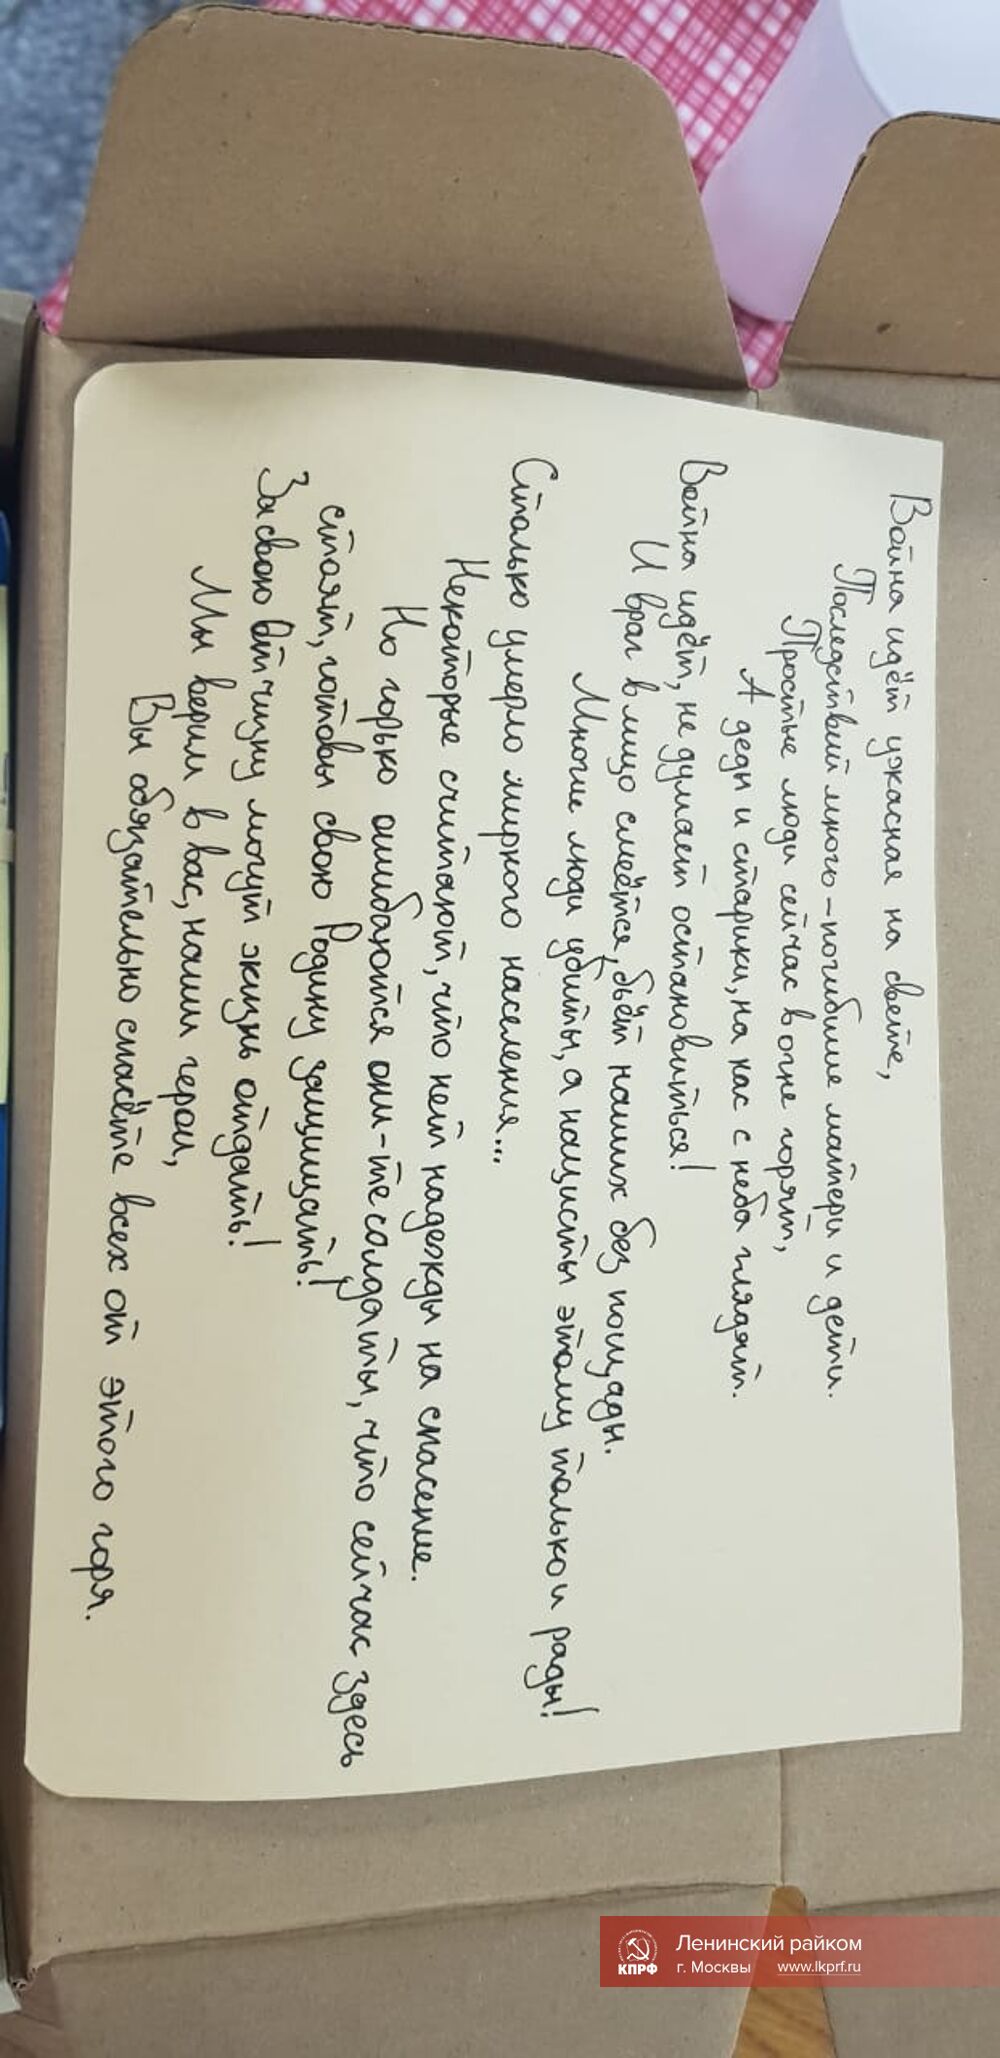 Война идёт ужасная на свете,
Последствий много - погибшие матери и дети.
Простые люди сейчас в огне горят,
А деды и старики, на нас с неба глядят.
Война идёт, не думает остановиться!
И враг в лицо смеётся, бьёт наших без пощады.
Многие люди убиты, а нацисты этому только и рады!
Столько умерло мирного населения...
Некоторые считают, что нет надежды на спасение.
Но горько ошибаются они - те солдаты, что сейчас здесь
стоят, готовы свою Родину защищать!
За свою Отчизну могут жизнь отдать!
Мы верим в вас, наши герои,
Вы обязательно спасёте всех от этого горя.
КПРФ
Ленинский райком
г. Москвы www.lkprf.ru